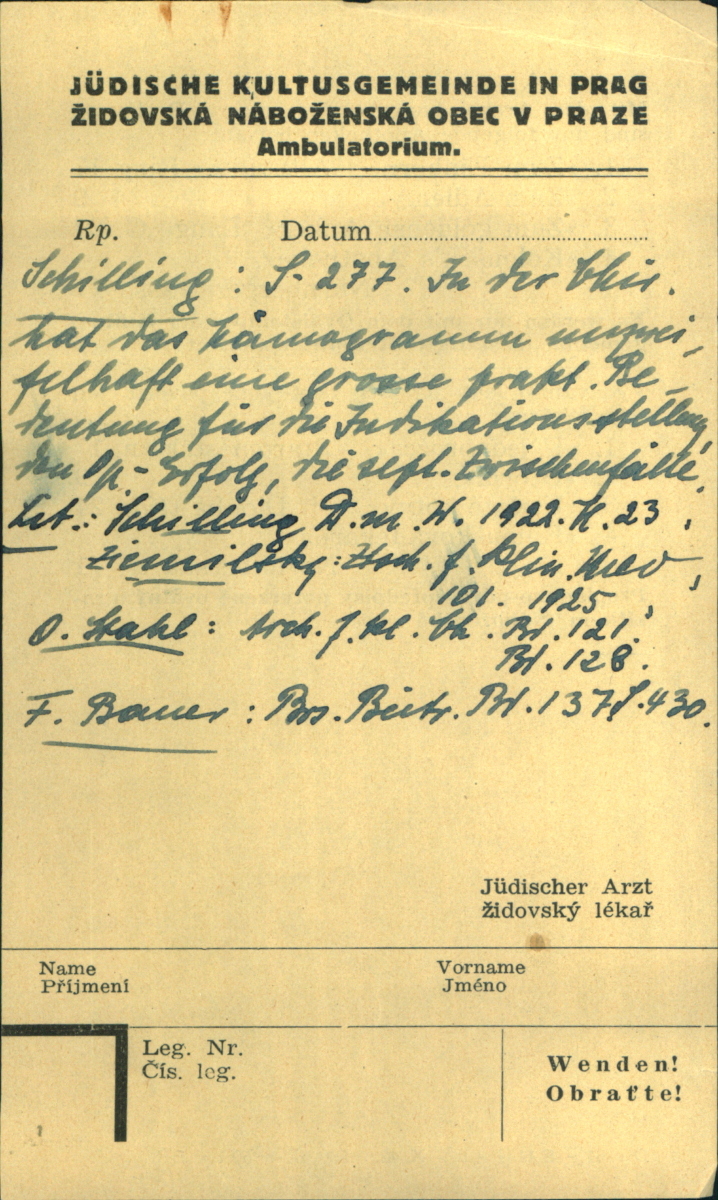 JÜDISCHE KULTUSGEMEINDE IN PRAG
ŽIDOVSKÁ NÁBOŽENSKÁ OBEC V PRAZE
Ambulatorium.
Rp. Datum
Schilling : S. 277. In der Chir.
hat das Hämogramm unzwei-
felhaft eine grosse prakt. Be-
deutung für die Indikationsstellung,
den Op-Erfolg, die sept. Zwischenfälle.
Lit.: Schilling D. m. W. 1922. H. 23,
Ztsch. f. klin. Med,
101. 1925,
O. Stahl: Arch. f. kl. Ch. Bd. 121.
Bd. 128.
F. Bauer: Brs. Beitr. Bd. 137. S. 430.
Jüdischer Arzt
židovský lékař
Name Vorname
Příjmení Jméno
Leg. Nr.
Čís. leg.
Wenden!
Obraťte!